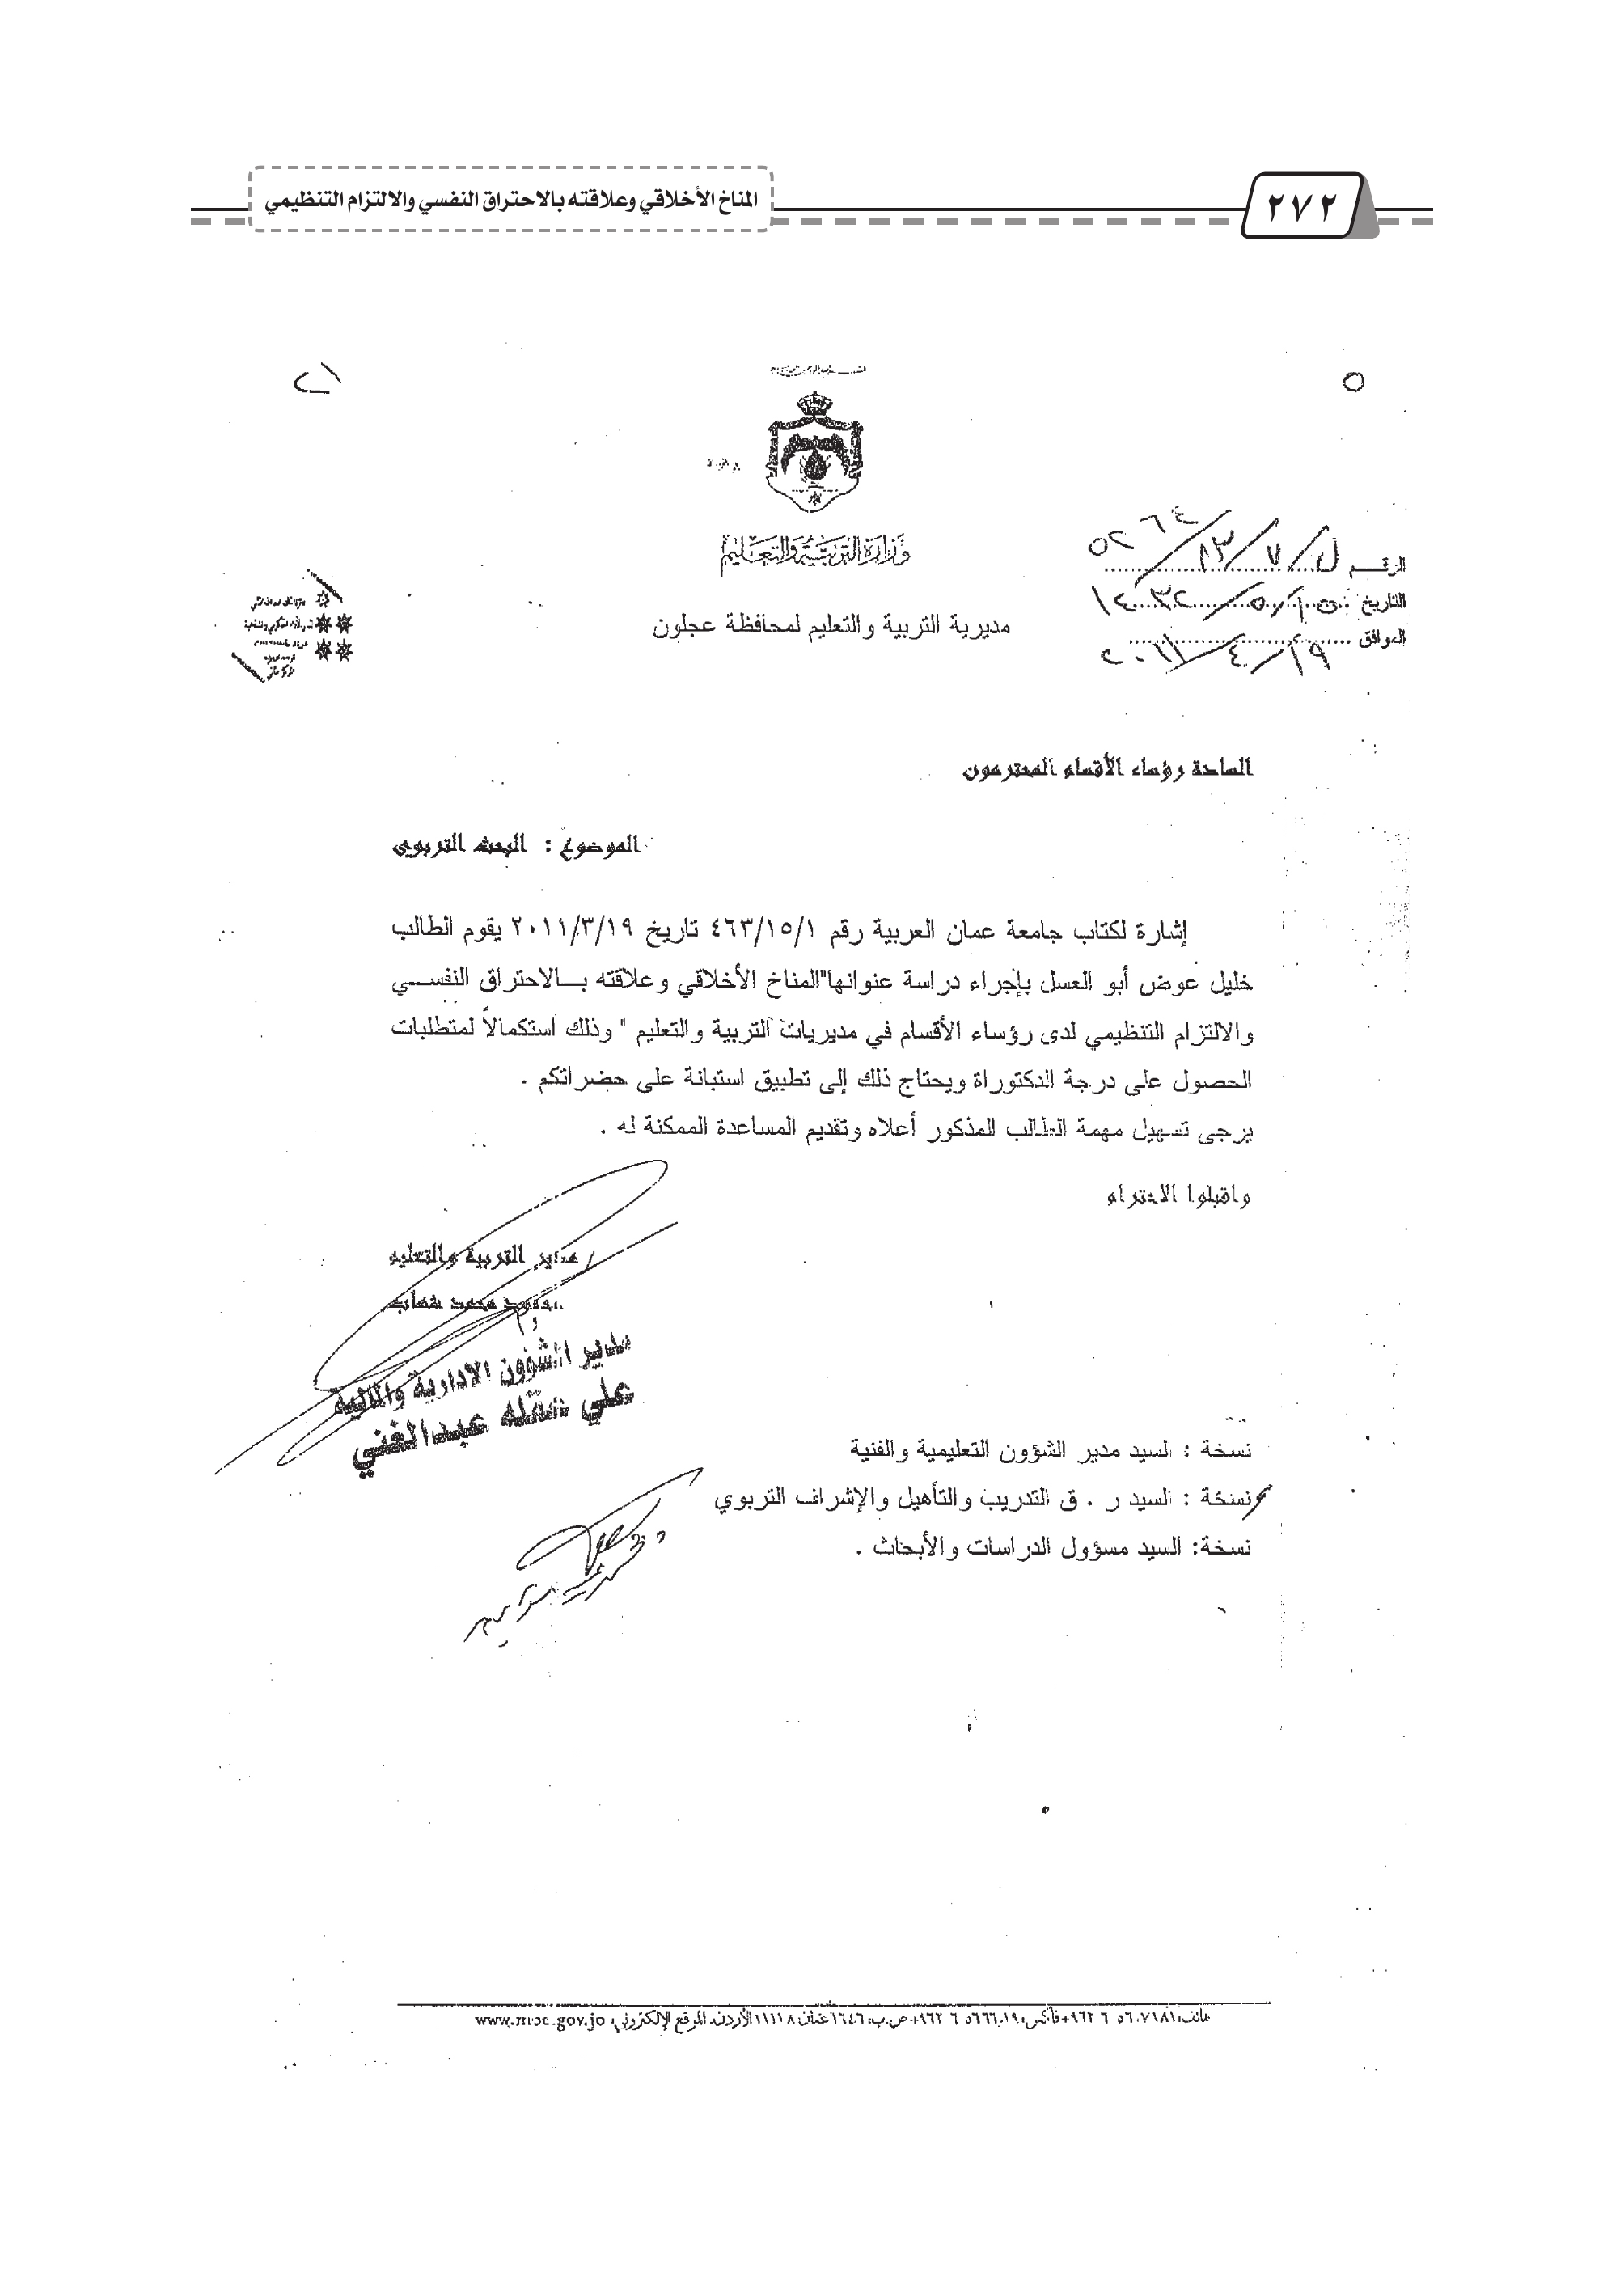 المناخ الأخلاقي وعلاقته بالاحتراق النفسي والالتزام التنظيمي
٢٧٢
وزارة التربية والتعليم
مديرية التربية والتعليم لمحافظة عجلون
الرقم ل/٧/١٣/٥٢٦٤
التاريخ ١٥/٥/١٤٣٢
الموافق ١٩/٤/٢٠١١
السادة رؤساء الأقسام المحترمون
الموضوع : البحث التربوي
إشارة لكتاب جامعة عمان العربية رقم ٤٦٣/١٥/١ تاريخ ٢٠١١/٣/١٩ يقوم الطالب
خليل عوض أبو العسل بإجراء دراسة عنوانها"المناخ الأخلاقي وعلاقته بــالاحتراق النفســي
والالتزام التنظيمي لدى رؤساء الأقسام في مديريات التربية والتعليم " وذلك استكمالاً لمتطلبات
الحصول على درجة الدكتوراة ويحتاج ذلك إلى تطبيق استبانة على حضراتكم .
يرجى تسهيل مهمة الطالب المذكور أعلاه وتقديم المساعدة الممكنة له .
واقبلوا الاحترام
/ مدير التربية والتعليم
محمد شهاب
مدير الشؤون الادارية والمالية
علي عقله عبدالغني
نسخة : السيد مدير الشؤون التعليمية والفنية
نسخة : السيد ر . ق التدريب والتأهيل والإشراف التربوي
نسخة: السيد مسؤول الدراسات والأبحاث .
هاتف: ٥٦٠٧١٨١ ٦ ٩٦٢+ فاكس: ٥٦٦٦٠١٩ ٦ ٩٦٢+ ص.ب: ١٦٤٦ عمّان ١١١١٨ الأردن. الموقع الإلكتروني: www.moe.gov.jo